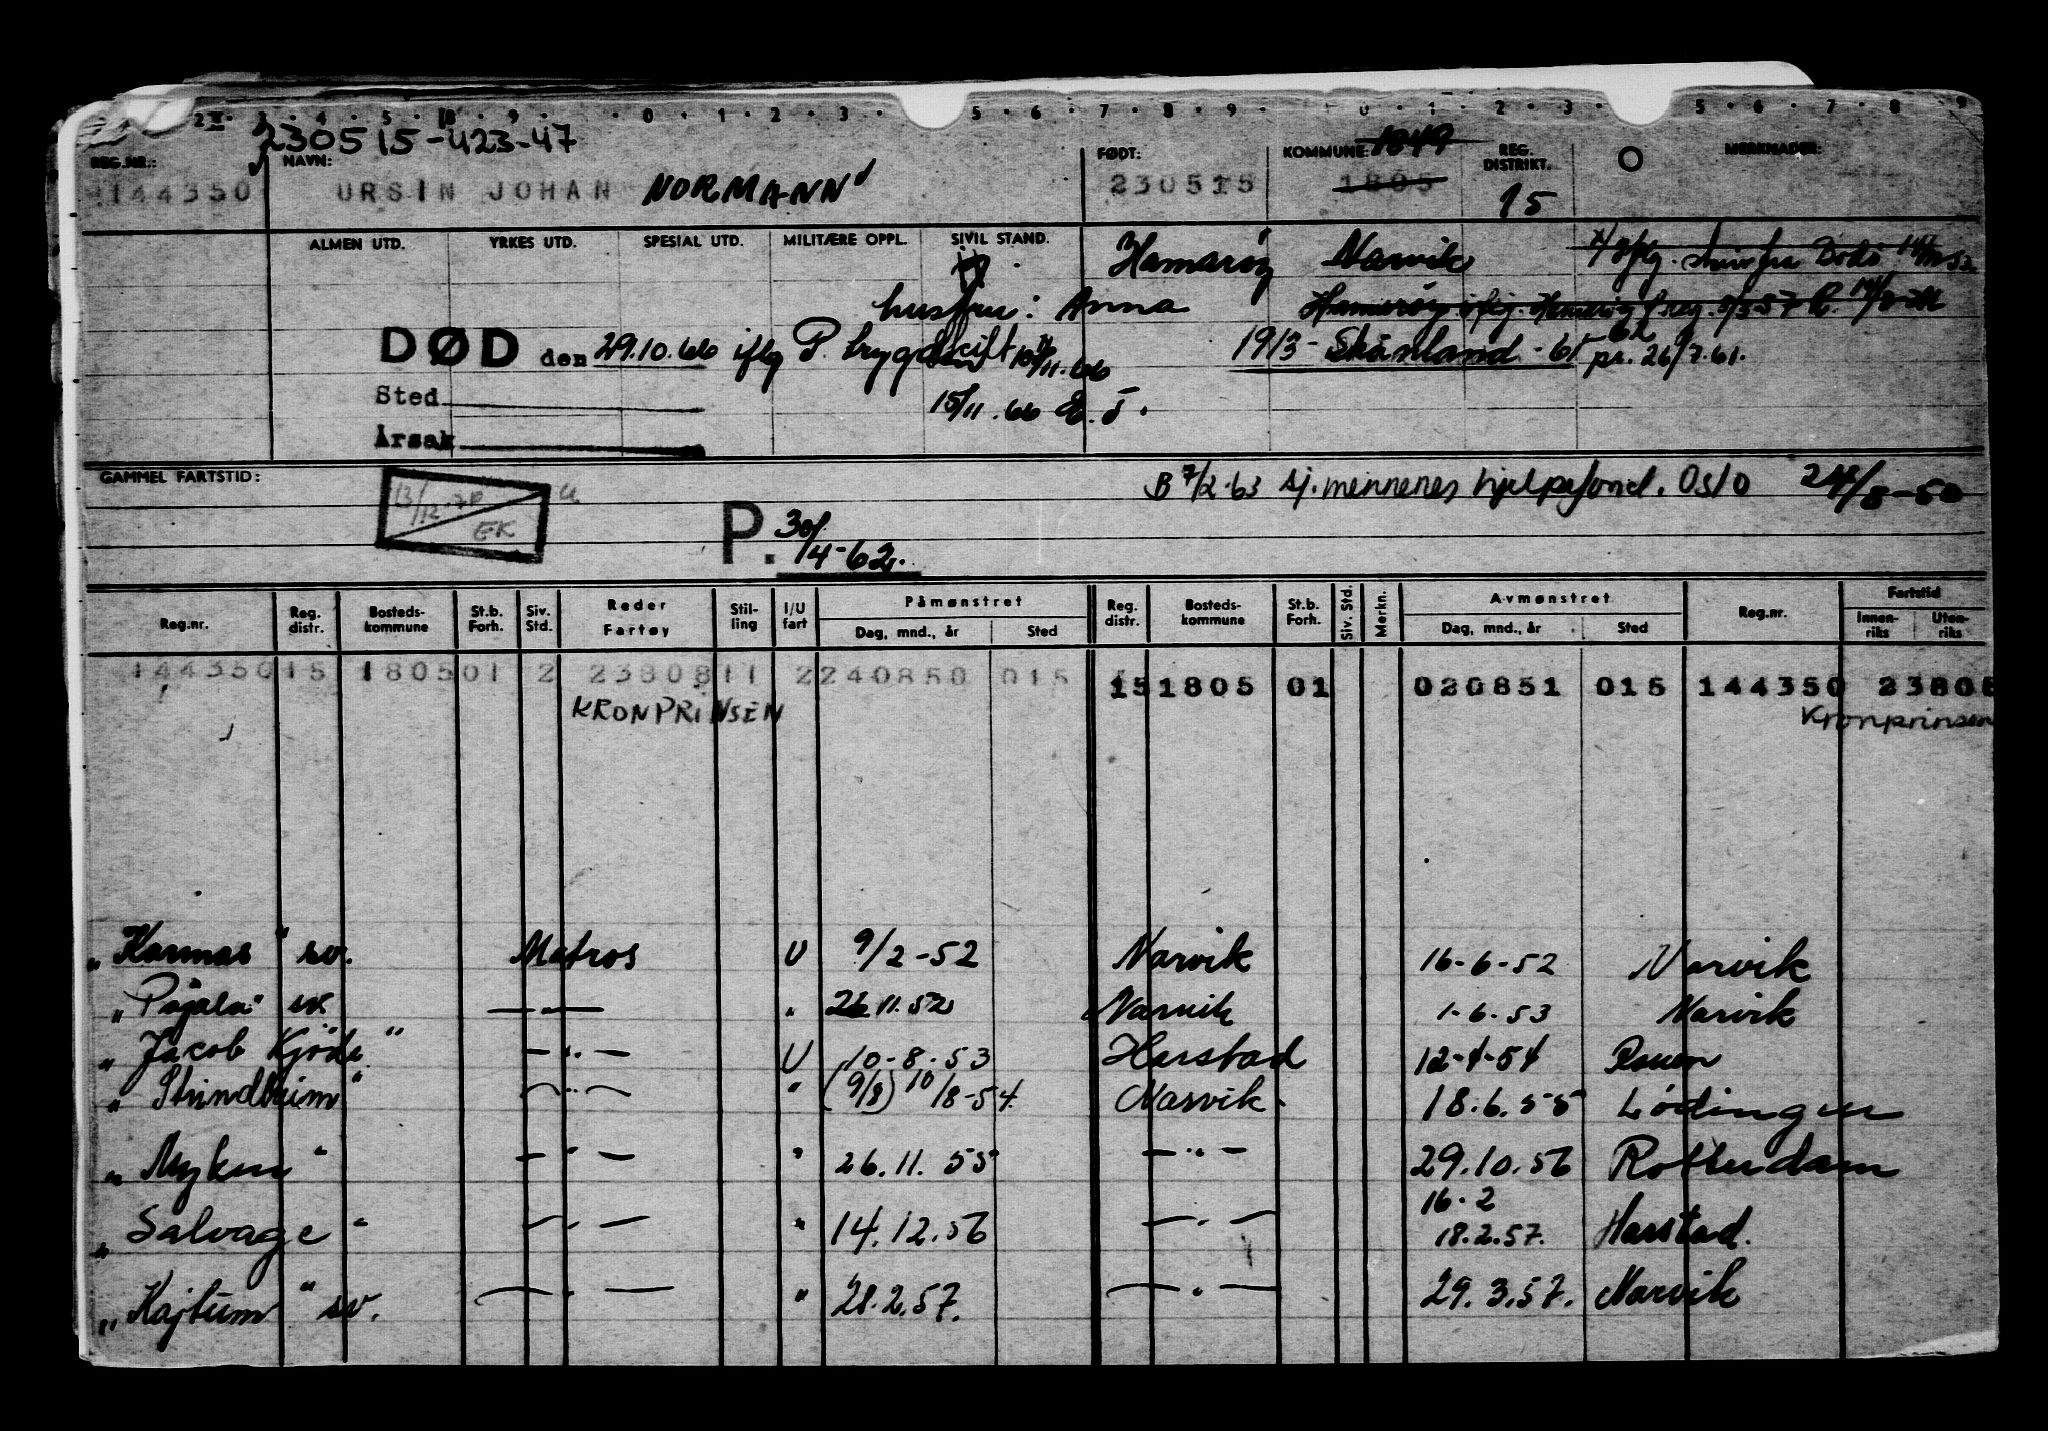 230515-423-47
REG.NR.: NAVN: FØDT: KOMMUNE: 1849 REG. DISTRIKT. MERKNADER:
144350 URSIN JOHAN NORMANN 230515 1805 15
ALMEN UTD. YRKES UTD. SPESIAL UTD. MILITÆRE OPPL. SIVIL STAND. Hamarøy Narvik
hustru: Anna
DØD den 29.10.66 iflg P. 1913 - Skånland - 61 pr. 26/7.61.
Sted 15/11.66
Årsak
GAMMEL FARTSTID: B 7/2-63 sj. mennenes hjelpefond. Oslo 24/8-50
13/12-78 EK
P. 30/4-62.
Reg.nr. Reg. distr. Bosteds-kommune St.b. Forh. Siv. Std. Reder Fartøy Stil-ling I/U fart Påmønstret Dag, mnd., år Sted Reg. distr. Bosteds-kommune St.b. Forh. Siv. Std. Merkn. Avmønstret Dag, mnd., år Sted Reg.nr. Fartstid Innen-riks Uten-riks
144350 15 1805 01 2 23808 11 2 240850 015 15 1805 01 020851 015 144350 23808
KRONPRINSEN Kronprinsen
"Karmas" sv. Matros U 9/2-52 Narvik 16-6-52 Narvik
"Pajala" sv. —"— " 26.11.52 Narvik 1-6.53 Narvik
"Jacob Kjöde" —"— U 10-8-53 Harstad 12-4-54 Rouen
"Strindheim" —"— " (9/8) 10/8-54. Narvik. 18.6.55 Lødingen
"Myken" —"— " 26.11.55 —"— 29.10.56 Rotterdam
16-2
"Salvage" —"— " 14.12.56 —"— 18.2.57. Harstad.
"Kajtum" sv. —"— " 28.2.57. —"— 29.3.57. Narvik